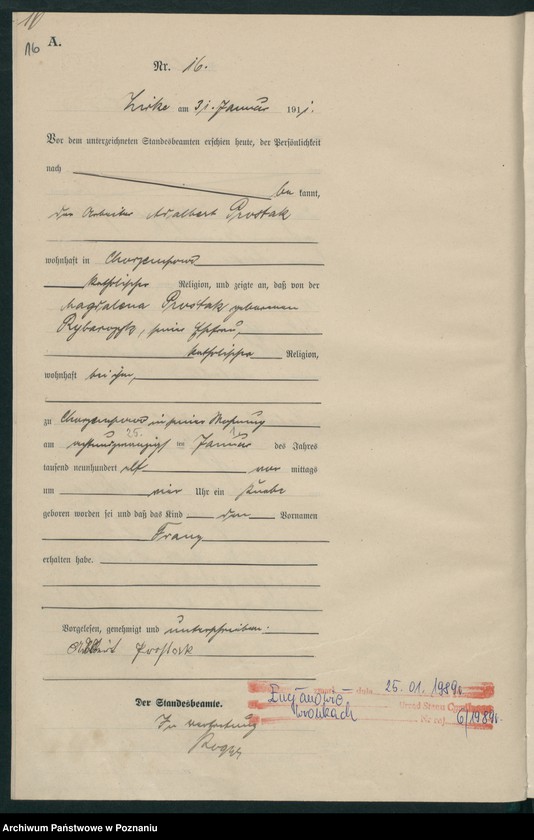 16
A.
Nr. 16.
Zirke am 31. Januar 1911.
Vor dem unterzeichneten Standesbeamten erschien heute, der Persönlichkeit
nach
be kannt,
der Arbeiter Adalbert Prostak
wohnhaft in Chorzempowo
katholischer Religion, und zeigte an, daß von der
Magdalena Prostak geborenen
Rybarczyk, seiner Ehefrau,
katholischer Religion,
wohnhaft bei ihm,
zu Chorzempowo in seiner Wohnung
am 25. Januar des Jahres
tausend neunhundert elf vor mittags
um vier Uhr ein Knabe
geboren worden sei und daß das Kind den Vornamen
Franz
erhalten habe.
Vorgelesen, genehmigt und unterschrieben.
Prostack
Der Standesbeamte.
In Vertretung
data 25. 01. 1989r
Wronkach
Urzad Stanu Cywilnego
Nr 6/1989r.
Archiwum Państwowe w Poznaniu